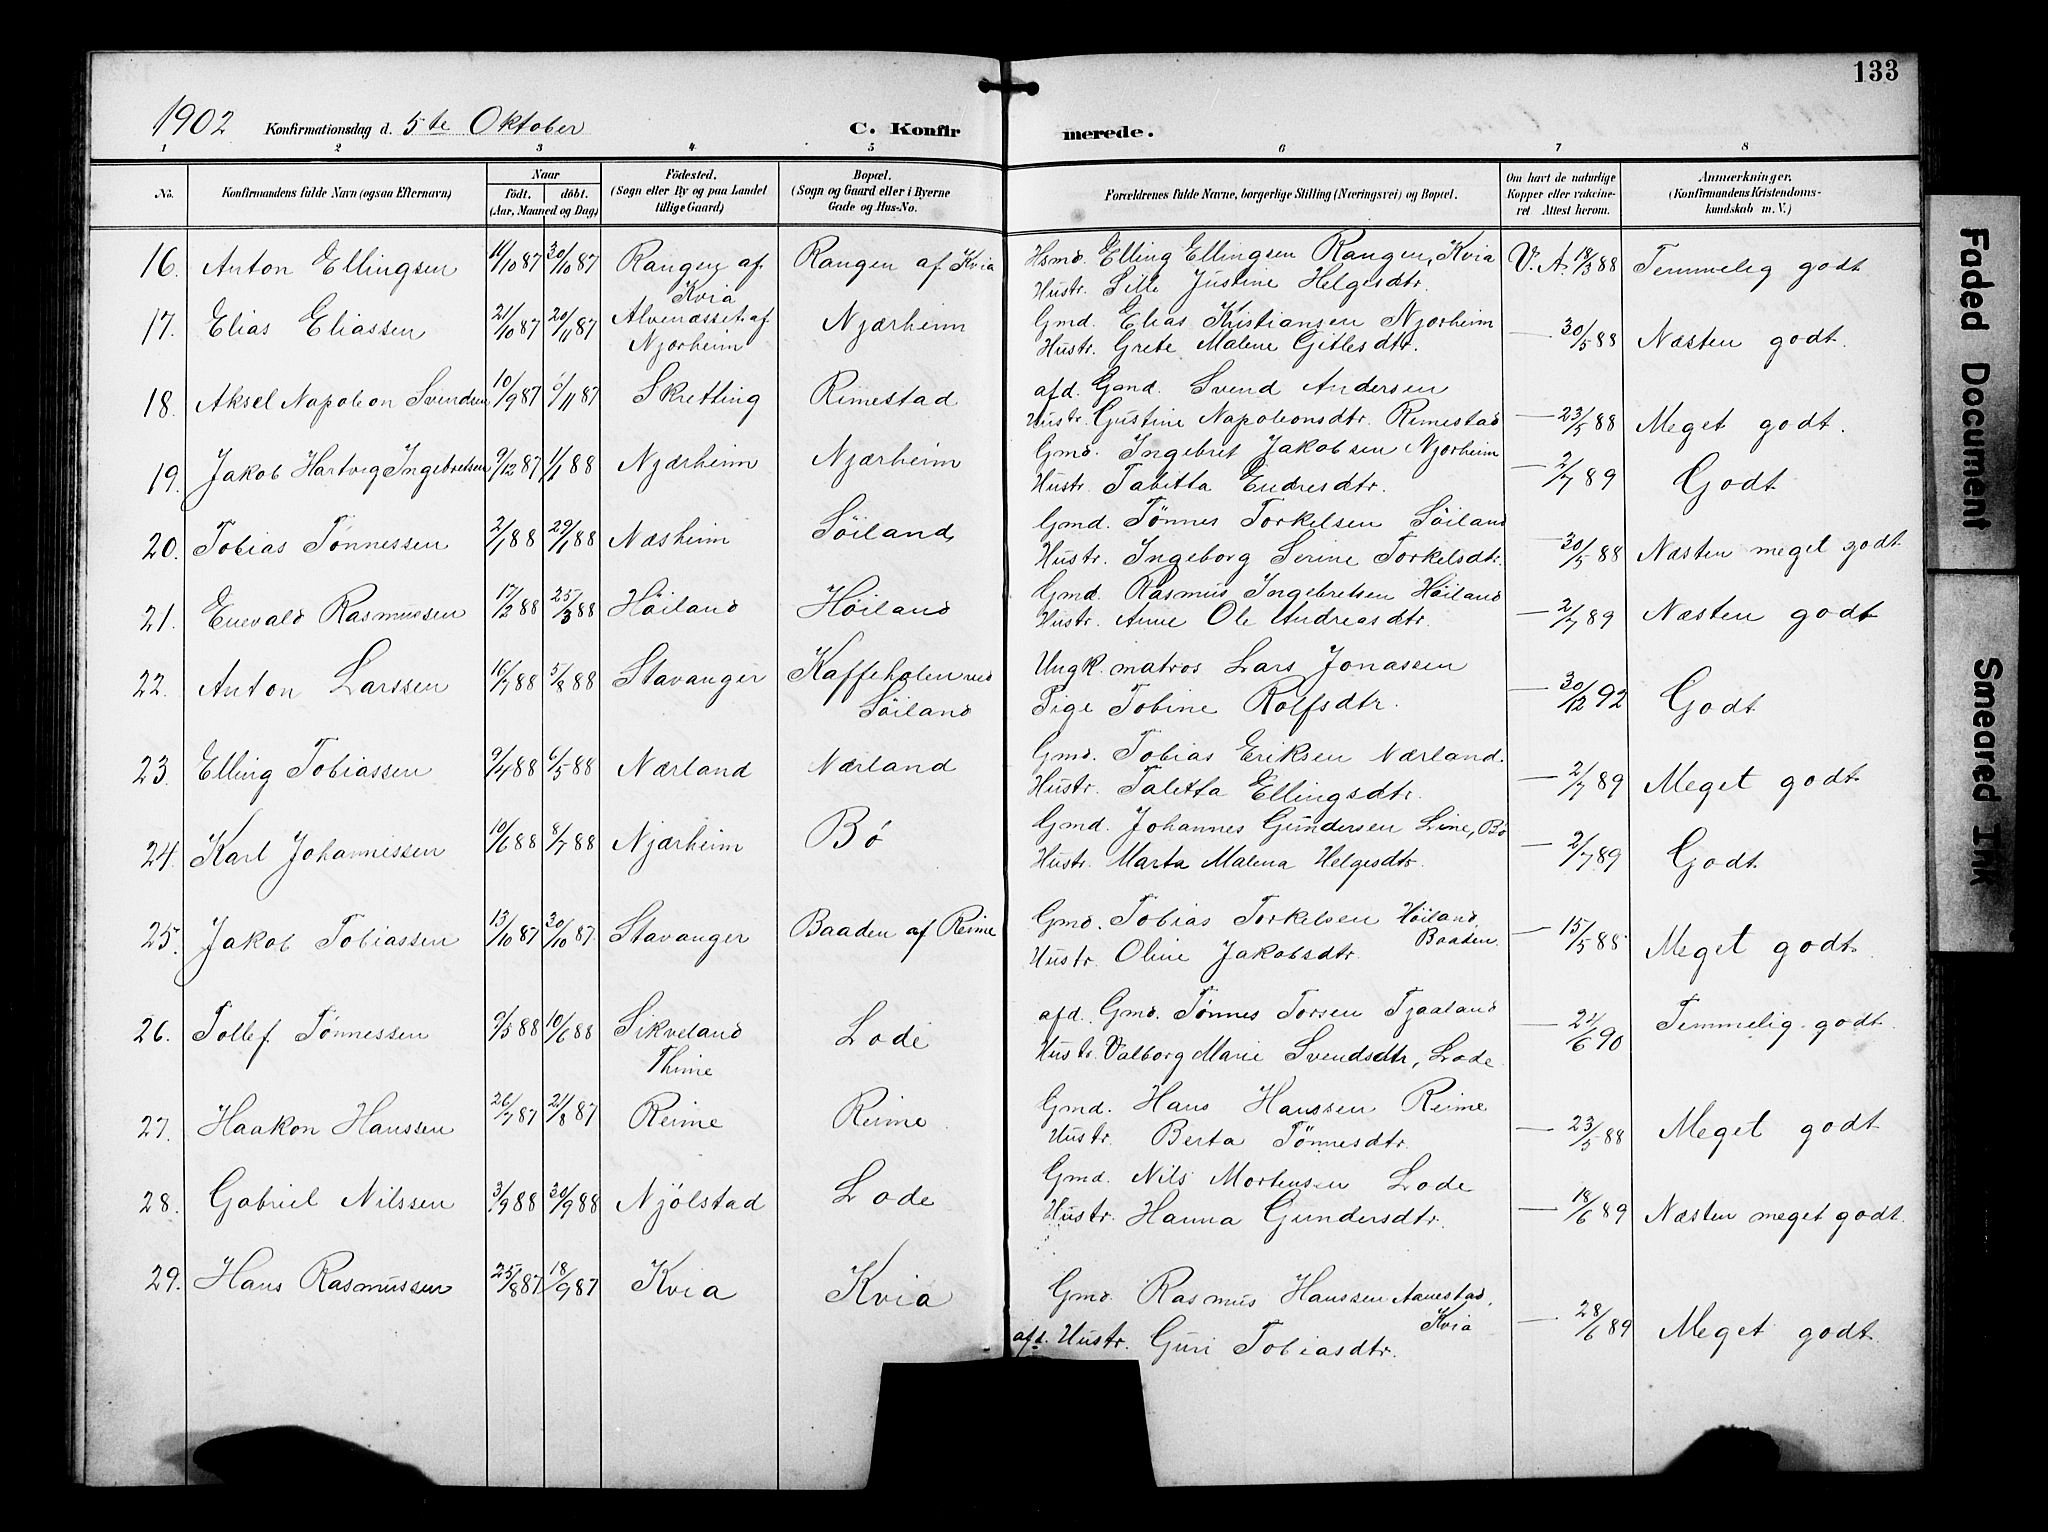 133
1902 Konfirmationsdag d. 5te Oktober C. Konfirmerede.
1 2 3 4 5 6 7 8
No. Konfirmandens fulde Navn (ogsaa Efternavn) Naar født. døbt. (Aar, Maaned og Dag) Fødested. (Sogn eller By og paa Landet tillige Gaard) Bopæl. (Sogn og Gaard eller i Byerne Gade og Hus-No. Forældrenes fulde Navne, borgerlige Stilling (Næringsvei) og Bopæl. Om havt de naturlige Kopper eller vakcineret Attest herom. Anmærkninger. (Konfirmandens Kristendomskundskab m. V.)
16. Anton Ellingsen 11/10 87 30/10 87 Rangen af Kvia Rangen af Kvia Hsmd. Elling Ellingsen Rangen, Kvia V. A. 18/3 88 Temmelig godt
Hustr. Sille Justine Helgesdtr.
17. Elias Eliassen 21/10 87 20/11 87 Alvenæsset af Njorheim Njærheim Gmd. Elias Kristiansen Njorheim — 30/5 88 Næsten godt.
Hustr. Grete Malene Gitlesdtr.
18. Aksel Napoleon Svendsen 10/9 87 6/11 87 Skretting Rimestad afd. Gmd. Svend Andersen — 23/5 88 Meget godt.
Hustr. Gustine Napoleonsdtr. Rimestad
19. Jakob Hartvig Ingebretsen 9/12 87 1/1 88 Njærheim Njærheim Gmd. Ingebret Jakobsen Njorheim — 2/7 89 Godt
Hustr. Tabitta Endresdtr.
20. Tobias Tønnessen 2/1 88 29/1 88 Næsheim Söiland Gmd. Tønnes Torkelsen Söiland — 30/5 88 Næsten meget godt
Hustr. Ingeborg Serine Torkelsdtr.
21. Enevald Rasmussen 17/2 88 25/3 88 Höiland Höiland Gmd. Rasmus Ingebretsen Höiland — 2/7 89 Næsten godt
Hustr. Anne Ole Andreasdtr.
22. Anton Larssen 16/7 88 5/8 88 Stavanger Kaffeholen ved Söiland Ungk. matros Lars Jonassen — 30/12 92 Godt
Pige Tobine Rolfsdtr.
23. Elling Tobiassen 9/4 88 6/5 88 Nærland Nærland Gmd. Tobias Eriksen Nærland. — 2/7 89 Meget godt
Hustr. Talitta Ellingsdtr.
24. Karl Johannessen 10/6 88 8/7 88 Njærheim Bø Gmd. Johannes Gundersen Line, Bø — 2/7 89 Godt
Hustr. Marta Malena Helgesdtr.
25. Jakob Tobiassen 13/10 87 30/10 87. Stavanger Baaden af Reime Gmd. Tobias Torkelsen Höiland, Baaden. — 15/5 88 Meget godt.
Hustr. Oline Jakobsdtr.
26. Tollef Tönnessen 9/5 88 10/6 88 Sikveland Thime Lode afd. Gmd. Tønnes Torsen Tjaaland — 24/6 90 Temmelig godt.
Hustr. Valborg Marie Svendsdtr, Lode
27. Haakon Hanssen 26/7 87 21/8 87 Reime Reime Gmd. Hans Hanssen Reime — 23/5 88 Meget godt
Hustr. Berta Tönnesdtr.
28. Gabriel Nilssen 3/9 88 30/9 88 Njölstad Lode Gmd. Nils Mortensen Lode — 18/6 89 Næsten meget godt.
Hustr. Hanna Gundersdtr.
29. Hans Rasmussen 25/8 87 18/9 87 Kvia Kvia Gmd. Rasmus Hanssen Aanestad, Kvia — 28/6 89 Meget godt.
afd. Hustr. Guri Tobiasdtr.
Faded Document
Smeared Ink